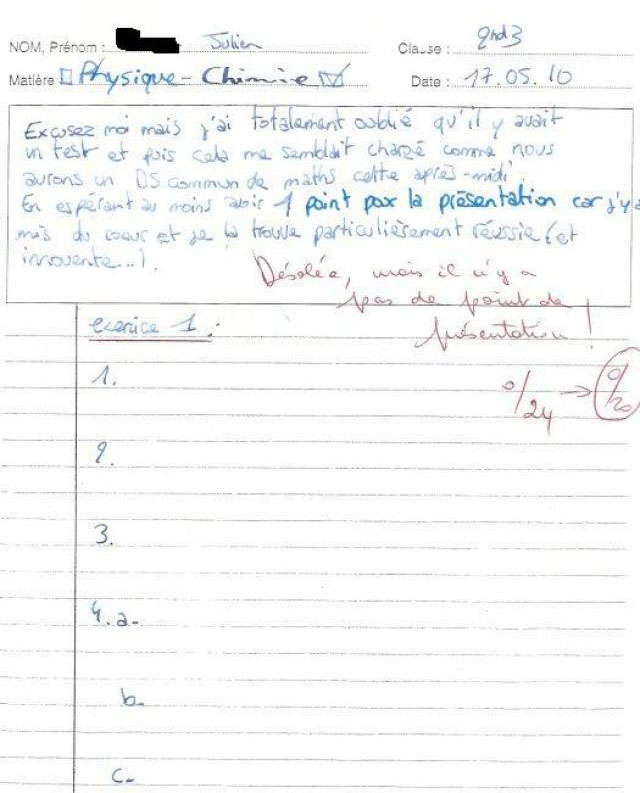 NOM, Prénom : Julien
Classe : 2nd3
Matière Physique - Chimie
Date : 17.05.10
Excusez moi mais j'ai totalement oublié qu'il y avait
un test et puis cela me semblait chargé comme nous
aurons un DS commun de maths cette après-midi.
En espérant au moins avoir 1 point pour la présentation car j'y ai
mis du coeur et je la trouve particulièrement réussie (et
innovente...).
Désolée, mais il n'y a
pas de point de
présentation !
exercice 1 :
0/24 → 0/20
1.
2.
3.
4. a-
b-
c-